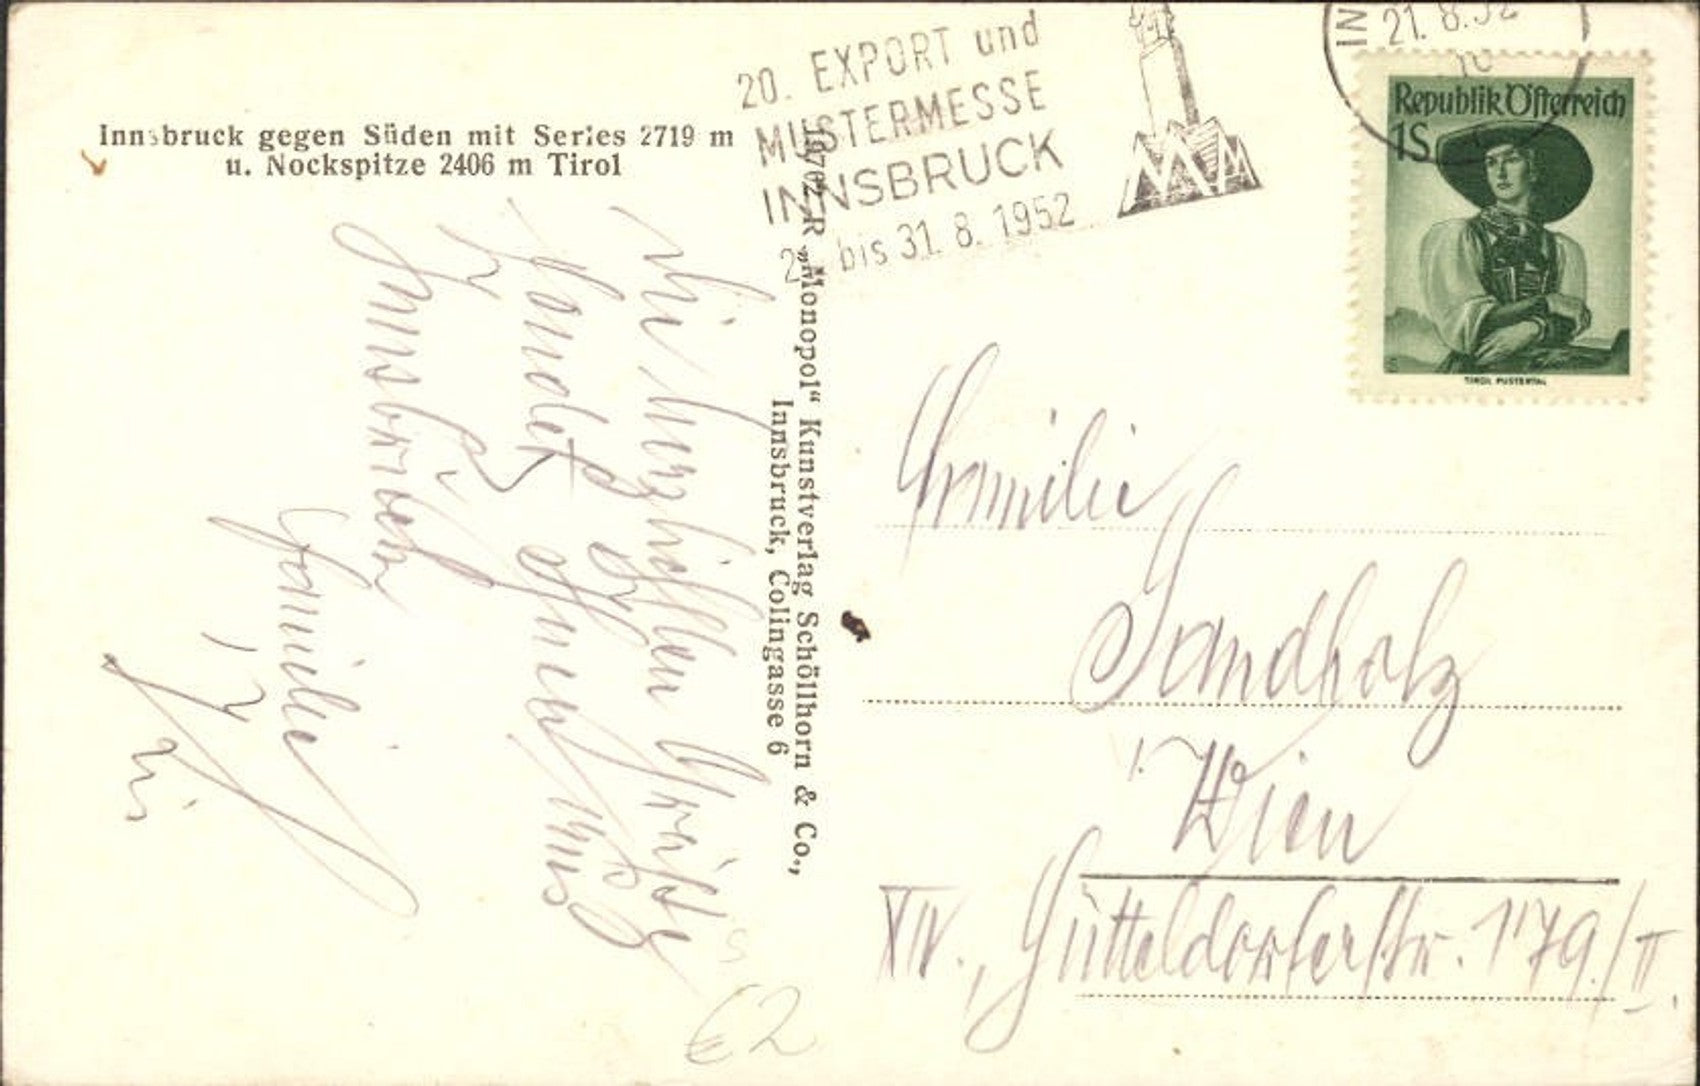 Innsbruck gegen Süden mit Serles 2719 m
u. Nockspitze 2406 m Tirol
20. EXPORT und
MUSTERMESSE
INNSBRUCK
bis 31. 8. 1952
21. 8. 52
Republik Österreich
1S
TIROL PUSTERTAL
10702 R „Monopol“ Kunstverlag Schöllhorn & Co.,
Innsbruck, Colingasse 6
Die herzlichsten Grüße
sendet
aus
Innsbruck
Familie
Familie
Sandholz
Wien
XIV., Hütteldorferstr. 179/II.
€2